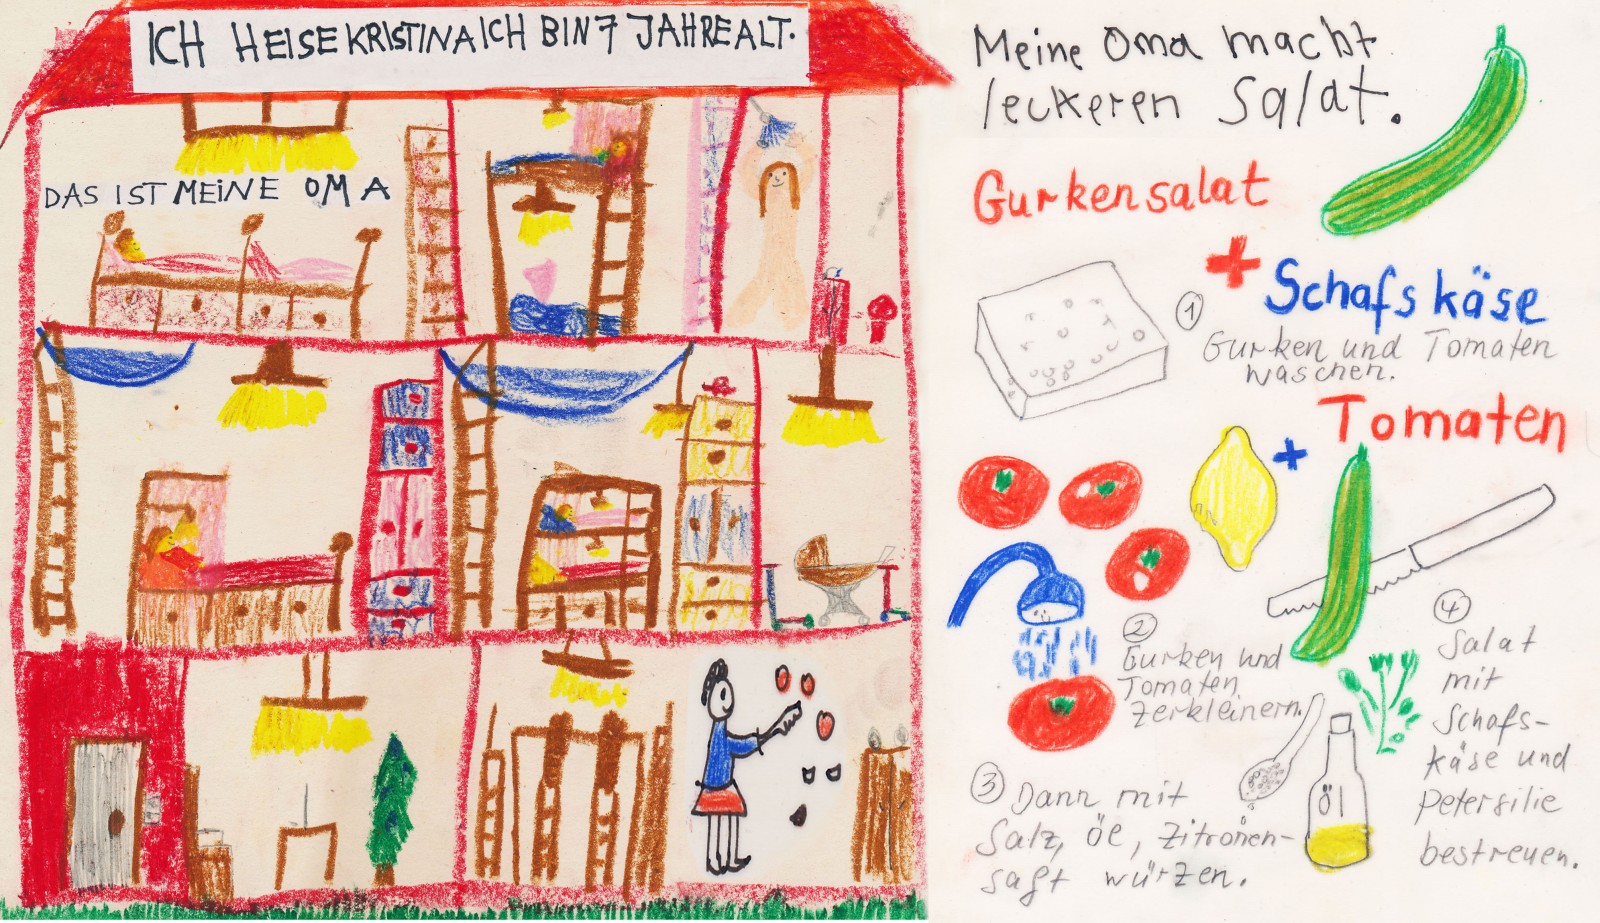 ICH HEISE KRISTINA ICH BIN 7 JAHRE ALT.
DAS IST MEINE OMA
Meine Oma macht
leckeren Salat.
Gurkensalat
+
Schafskäse
① Gurken und Tomaten
waschen.
+ Tomaten
② Gurken und
Tomaten
zerkleinern.
③ Dann mit
Salz, Öl, Zitronen-
saft würzen.
Öl
④ Salat
mit
Schafs-
käse und
Petersilie
bestreuen.